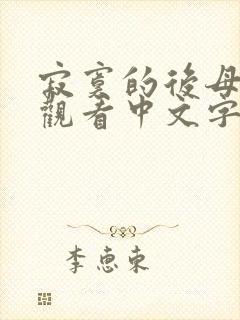 寂寞的後母
觀看中文字
李惠东